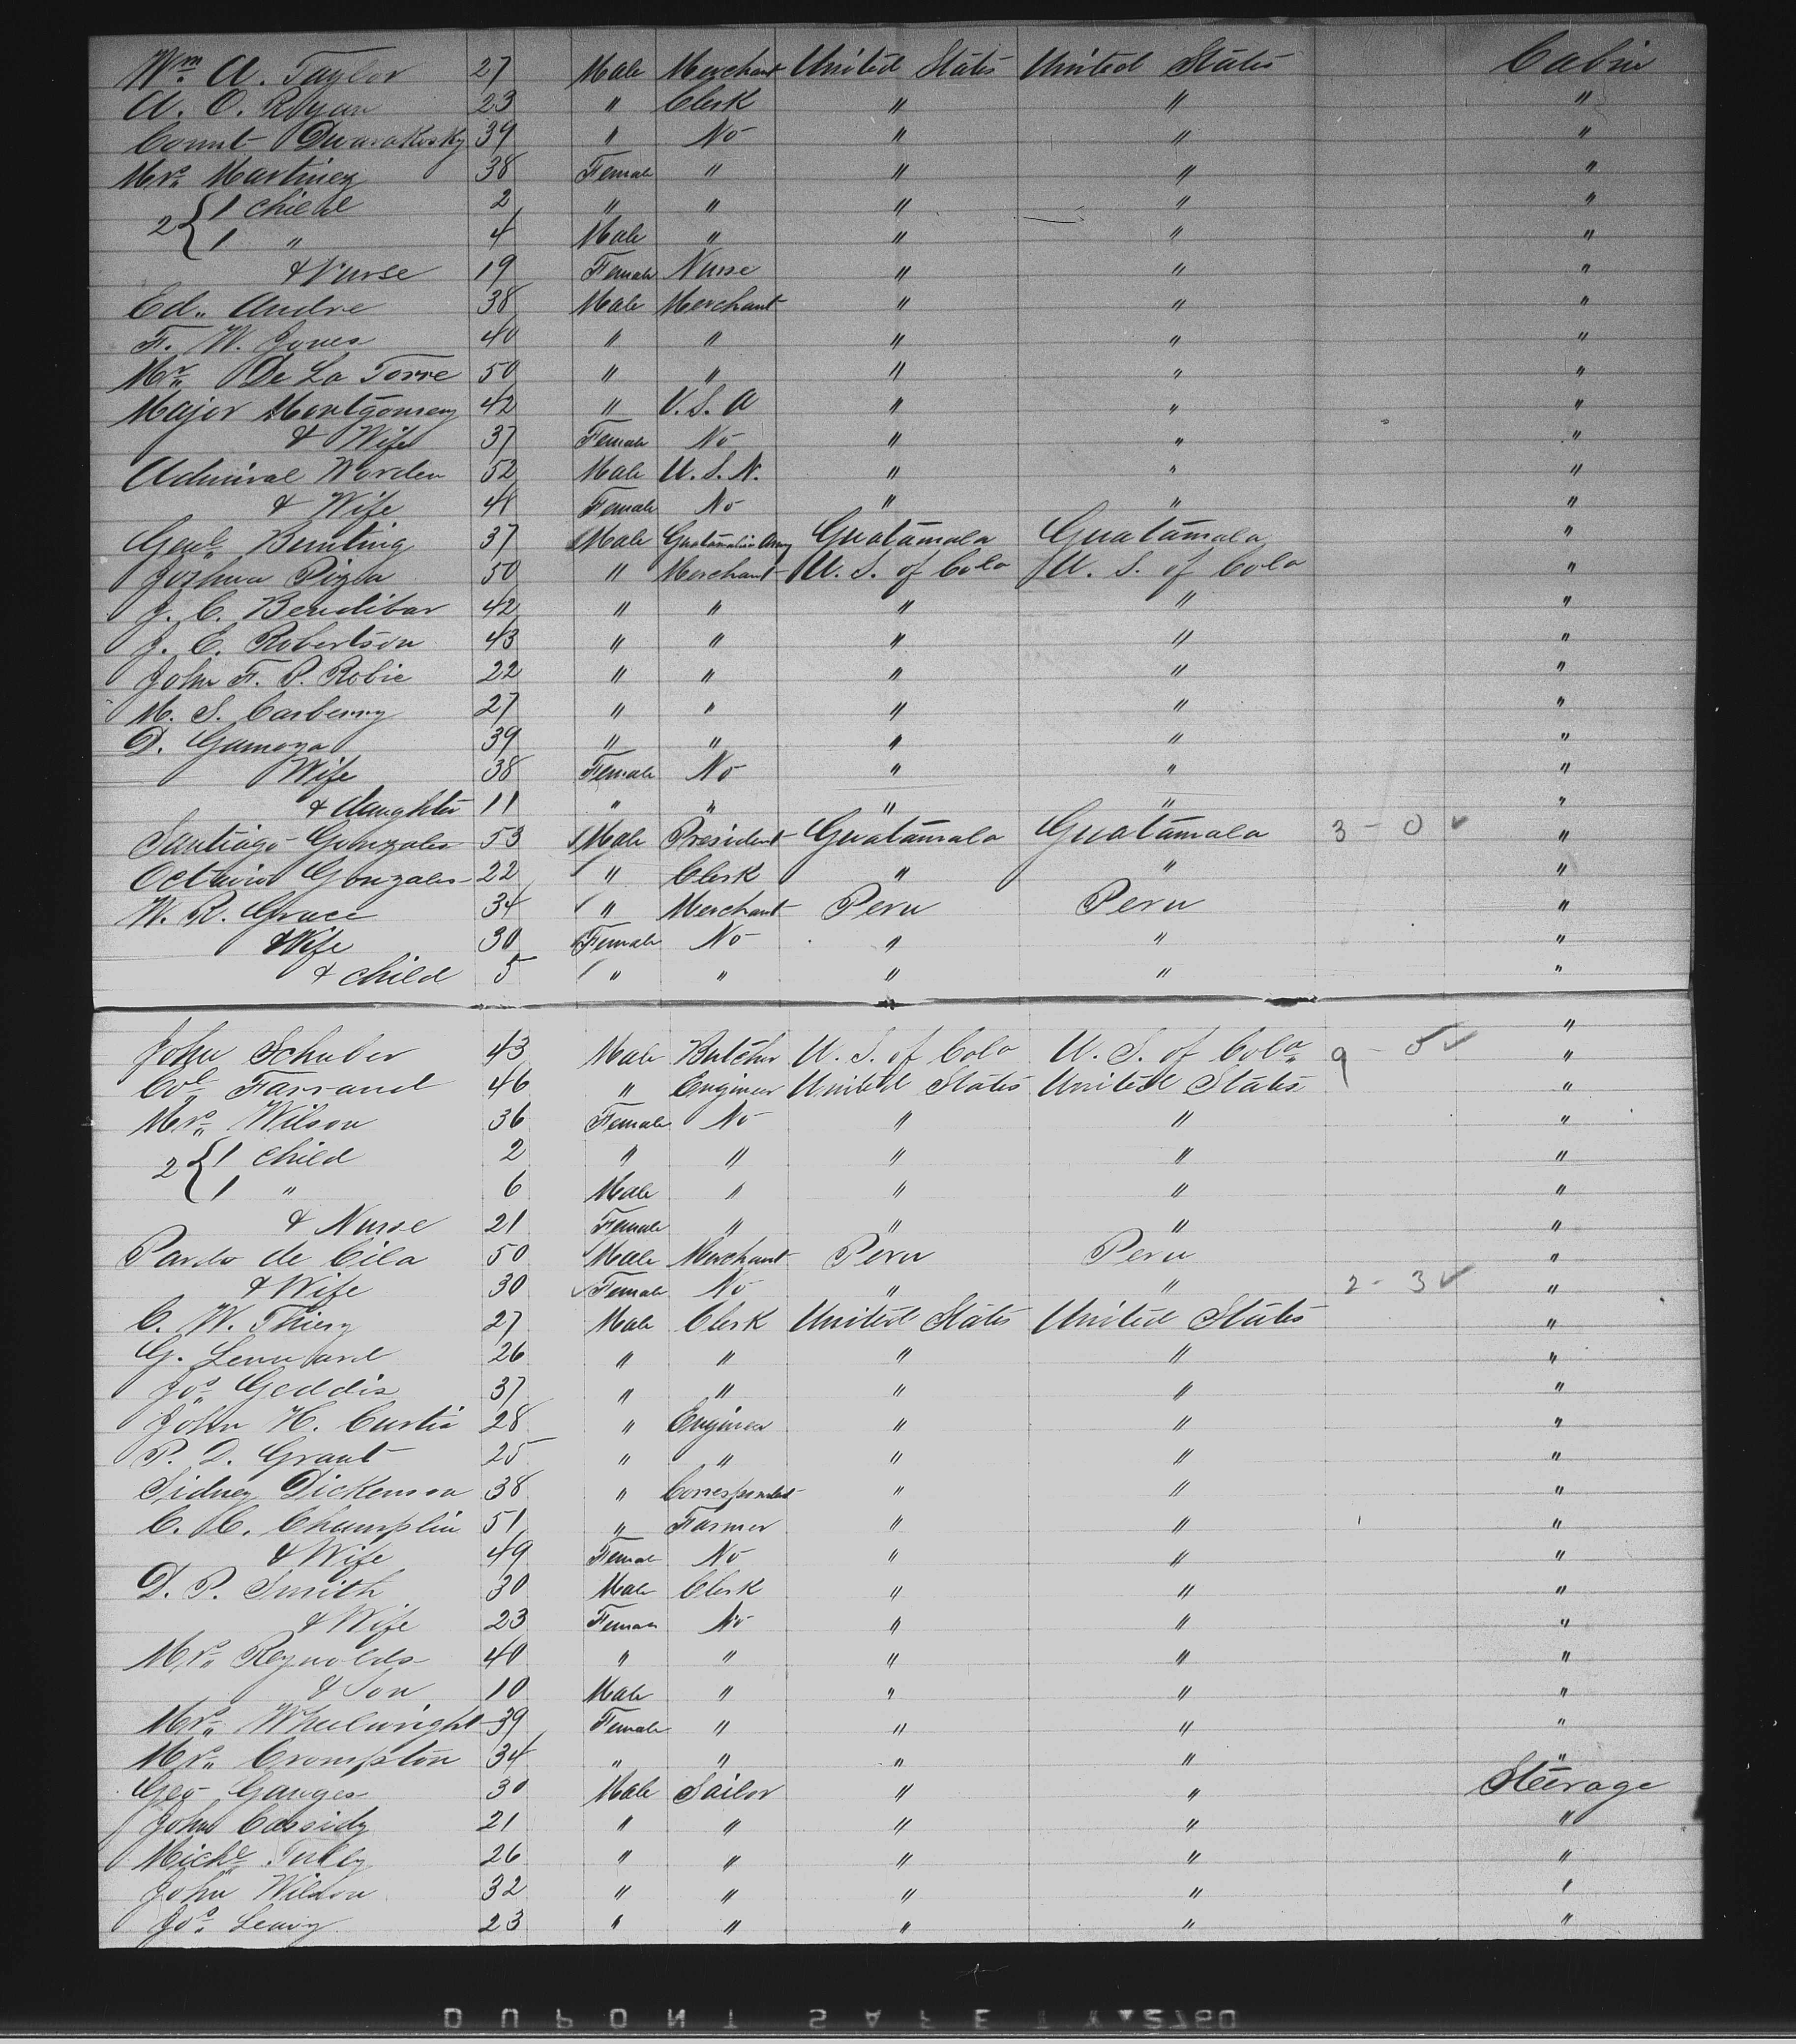 Wm A. Taylor 27 Male Merchant United States United States Cabin
A. C. Ryan 23 " Clerk " " "
Count Dwarakosky 39 " No " " "
Mrs Martinez 38 Female " " " "
2 { 1 Child 2 " " " " "
1 " 4 Male " " " "
& Nurse 19 Female Nurse " " "
Ed. Andre 38 Male Merchant " " "
F. W. Jones 40 " " " " "
Mr. De La Torre 50 " " " " "
Major Montgomery 42 " U.S.A " " "
& Wife 37 Female No " " "
Admiral Worden 52 Male U.S.N. " " "
& Wife 48 Female No " " "
Genl Bunting 37 Male Guatamalian Army Guatamala Guatamala "
Joshua Piza 50 " Merchant U. S. of Colo U. S. of Colo "
J. C. Bendibar 42 " " " " "
J. E. Robertson 43 " " " " "
John F. P. Robie 22 " " " " "
M. S. Carberry 27 " " " " "
D. Gamoza 39 " " " " "
Wife 38 Female No " " "
& daughter 11 " " " " "
Santiago Gonzales 53 Male President Guatamala Guatamala 3 - 0 ✓ "
Octavio Gonzales 22 " Clerk " " "
W. R. Grace 34 " Merchant Peru Peru "
& Wife 30 Female No " " "
& Child 5 " " " " "
"
John Schuber 43 Male Butcher U. S. of Colo U. S. of Colo 9 - 5 ✓ "
Col Farrand 46 " Engineer United States United States "
Mrs. Wilson 36 Female No " " "
2 { 1 Child 2 " " " " "
1 " 6 Male " " " "
& Nurse 21 Female " " " "
Pardo de Cila 50 Male Merchant Peru Peru "
& Wife 30 Female No " " 2 - 3 ✓ "
C. W. Thiery 27 Male Clerk United States United States "
G. Lennard 26 " " " " "
Jos. Geddis 37 " " " " "
John H. Curtis 28 " Engineer " " "
P. D. Grant 25 " " " " "
Sidney Dickenson 38 " Correspondent " " "
C. C. Champlin 51 " Farmer " " "
& Wife 49 Female No " " "
D. P. Smith 30 Male Clerk " " "
& Wife 23 Female No " " "
Mrs. Reynolds 40 " " " " "
& Son 10 Male " " " "
Mrs. Wheelwright 39 Female " " " "
Mrs. Crompton 34 " " " " "
Geo Ganges 30 Male Sailor " " Steerage
John Cassidy 21 " " " " "
Michl Tully 26 " " " " "
John Wilson 32 " " " " "
Jos. Leavy 23 " " " " "
DUPONT SAFETY 2760